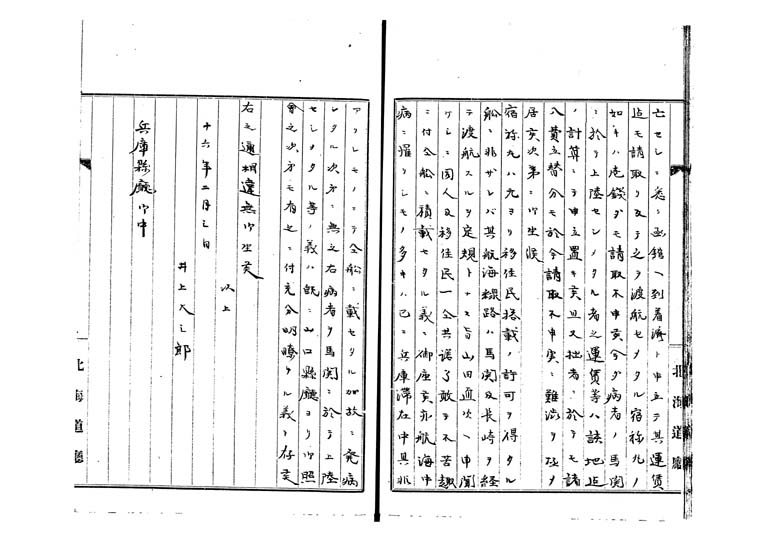 亡セシニ悉ク函館ヘ到着濟ト申立テ其運賃
迄モ請取リ及フ之ヲ渡航セシメタル宿祢丸ノ
如キハ宅錢ダモ請取不申寅今ダ病者ノ馬関
ニ於テ上陸セシメタル者之運賃等ハ該地迄
ノ計算ニテ申立置キ亥且又拙者ニ於テモ諸
入費立替分モ於今請取不申実ニ難渋ヲ極ヲ
居亥次第ニ御坐候
宿祢丸ハ元ヨリ移住民搭載ノ許可ヲ得タル
船ニ非ザレバ其航海線路ハ馬関及長崎ヲ経
テ渡航スルヲ定規トナス旨山田通次ヘ申聞
ケシニ同人及移住民一仝共諾了敢テ不苦趣
ニ付仝船ニ積載セタル義ニ御座亥尤航海中
病ニ罹リシモノ多キハ已ニ兵庫滞在中具兆
アリシモノニテ仝船ニ載セタル加故ニ発病
シタル次第ニ無之右病者ヲ馬関ニ於テ上陸
セシメタル等ノ義ハ既ニ山口縣廳ヨリ御照
會之次第モ有之ニ付充分明瞭ナル義ト存亥
右之通相違無御坐亥
以上
十六年二月三日
井上大三郎
兵庫縣廳御中
北海道廳
北海道廳